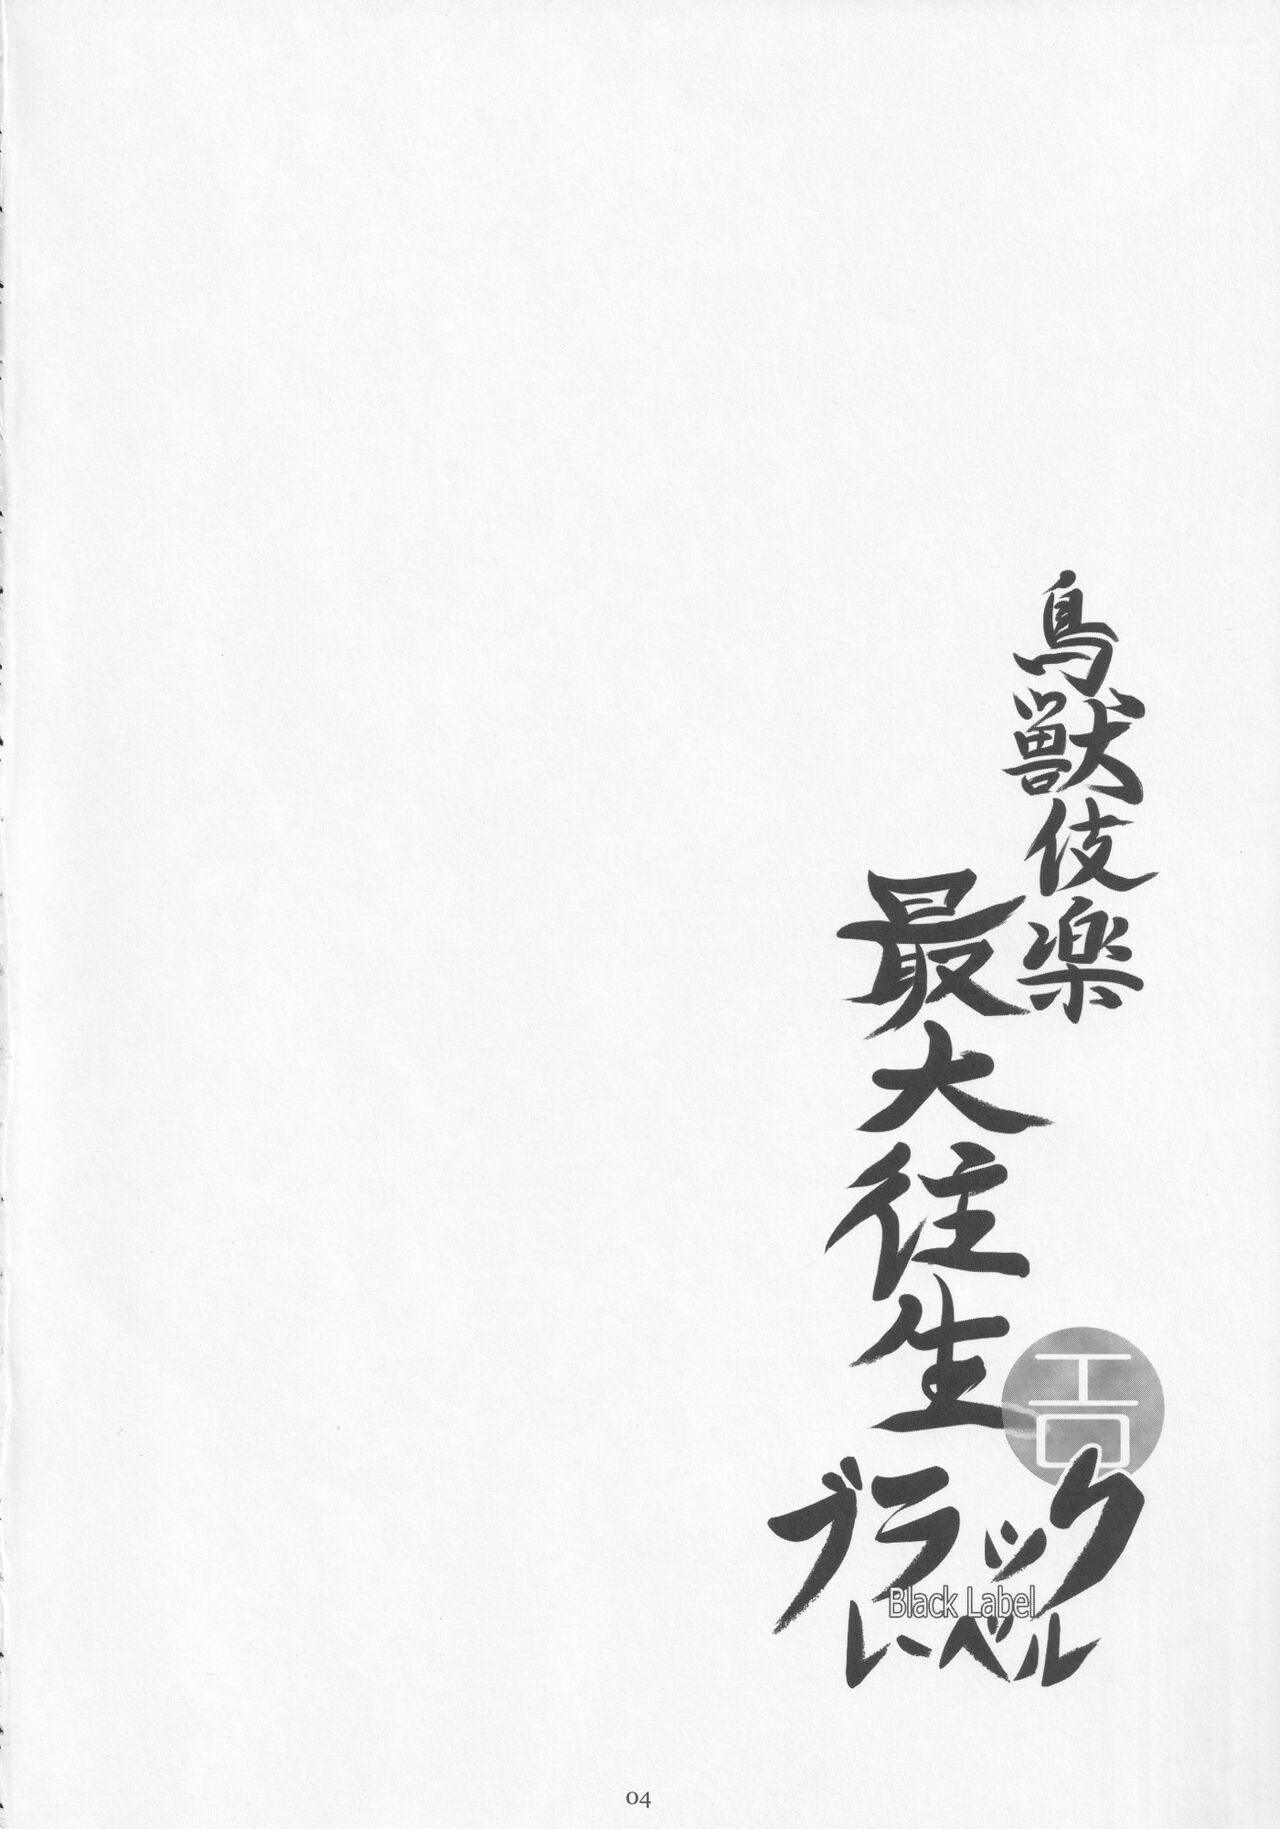 鳥獣伎楽
最大往生
エロ
ブラック
Black Label
レーベル
04